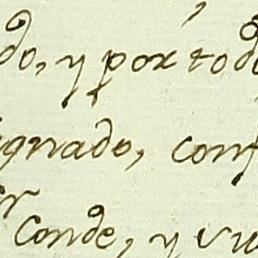 do, y por todo
ignado, conf
er
Conde, y vu